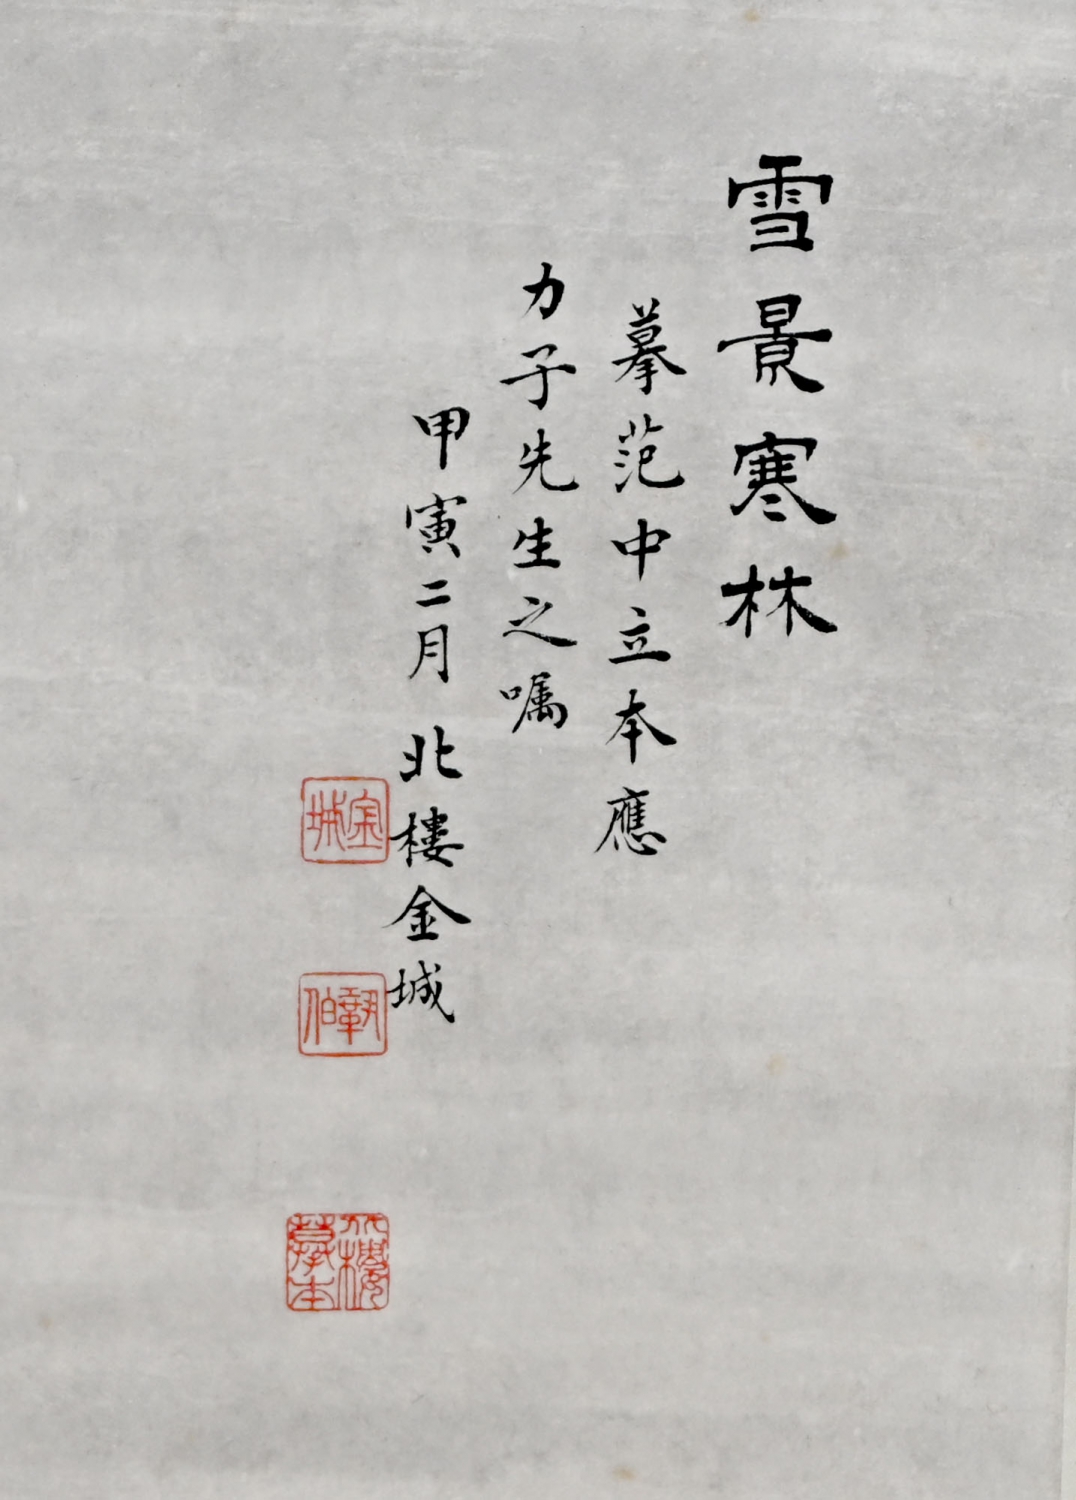 雪景寒林
摹范中立本應
力子先生之嘱
甲寅二月 北樓金城
金城
鞏伯
北樓摹本